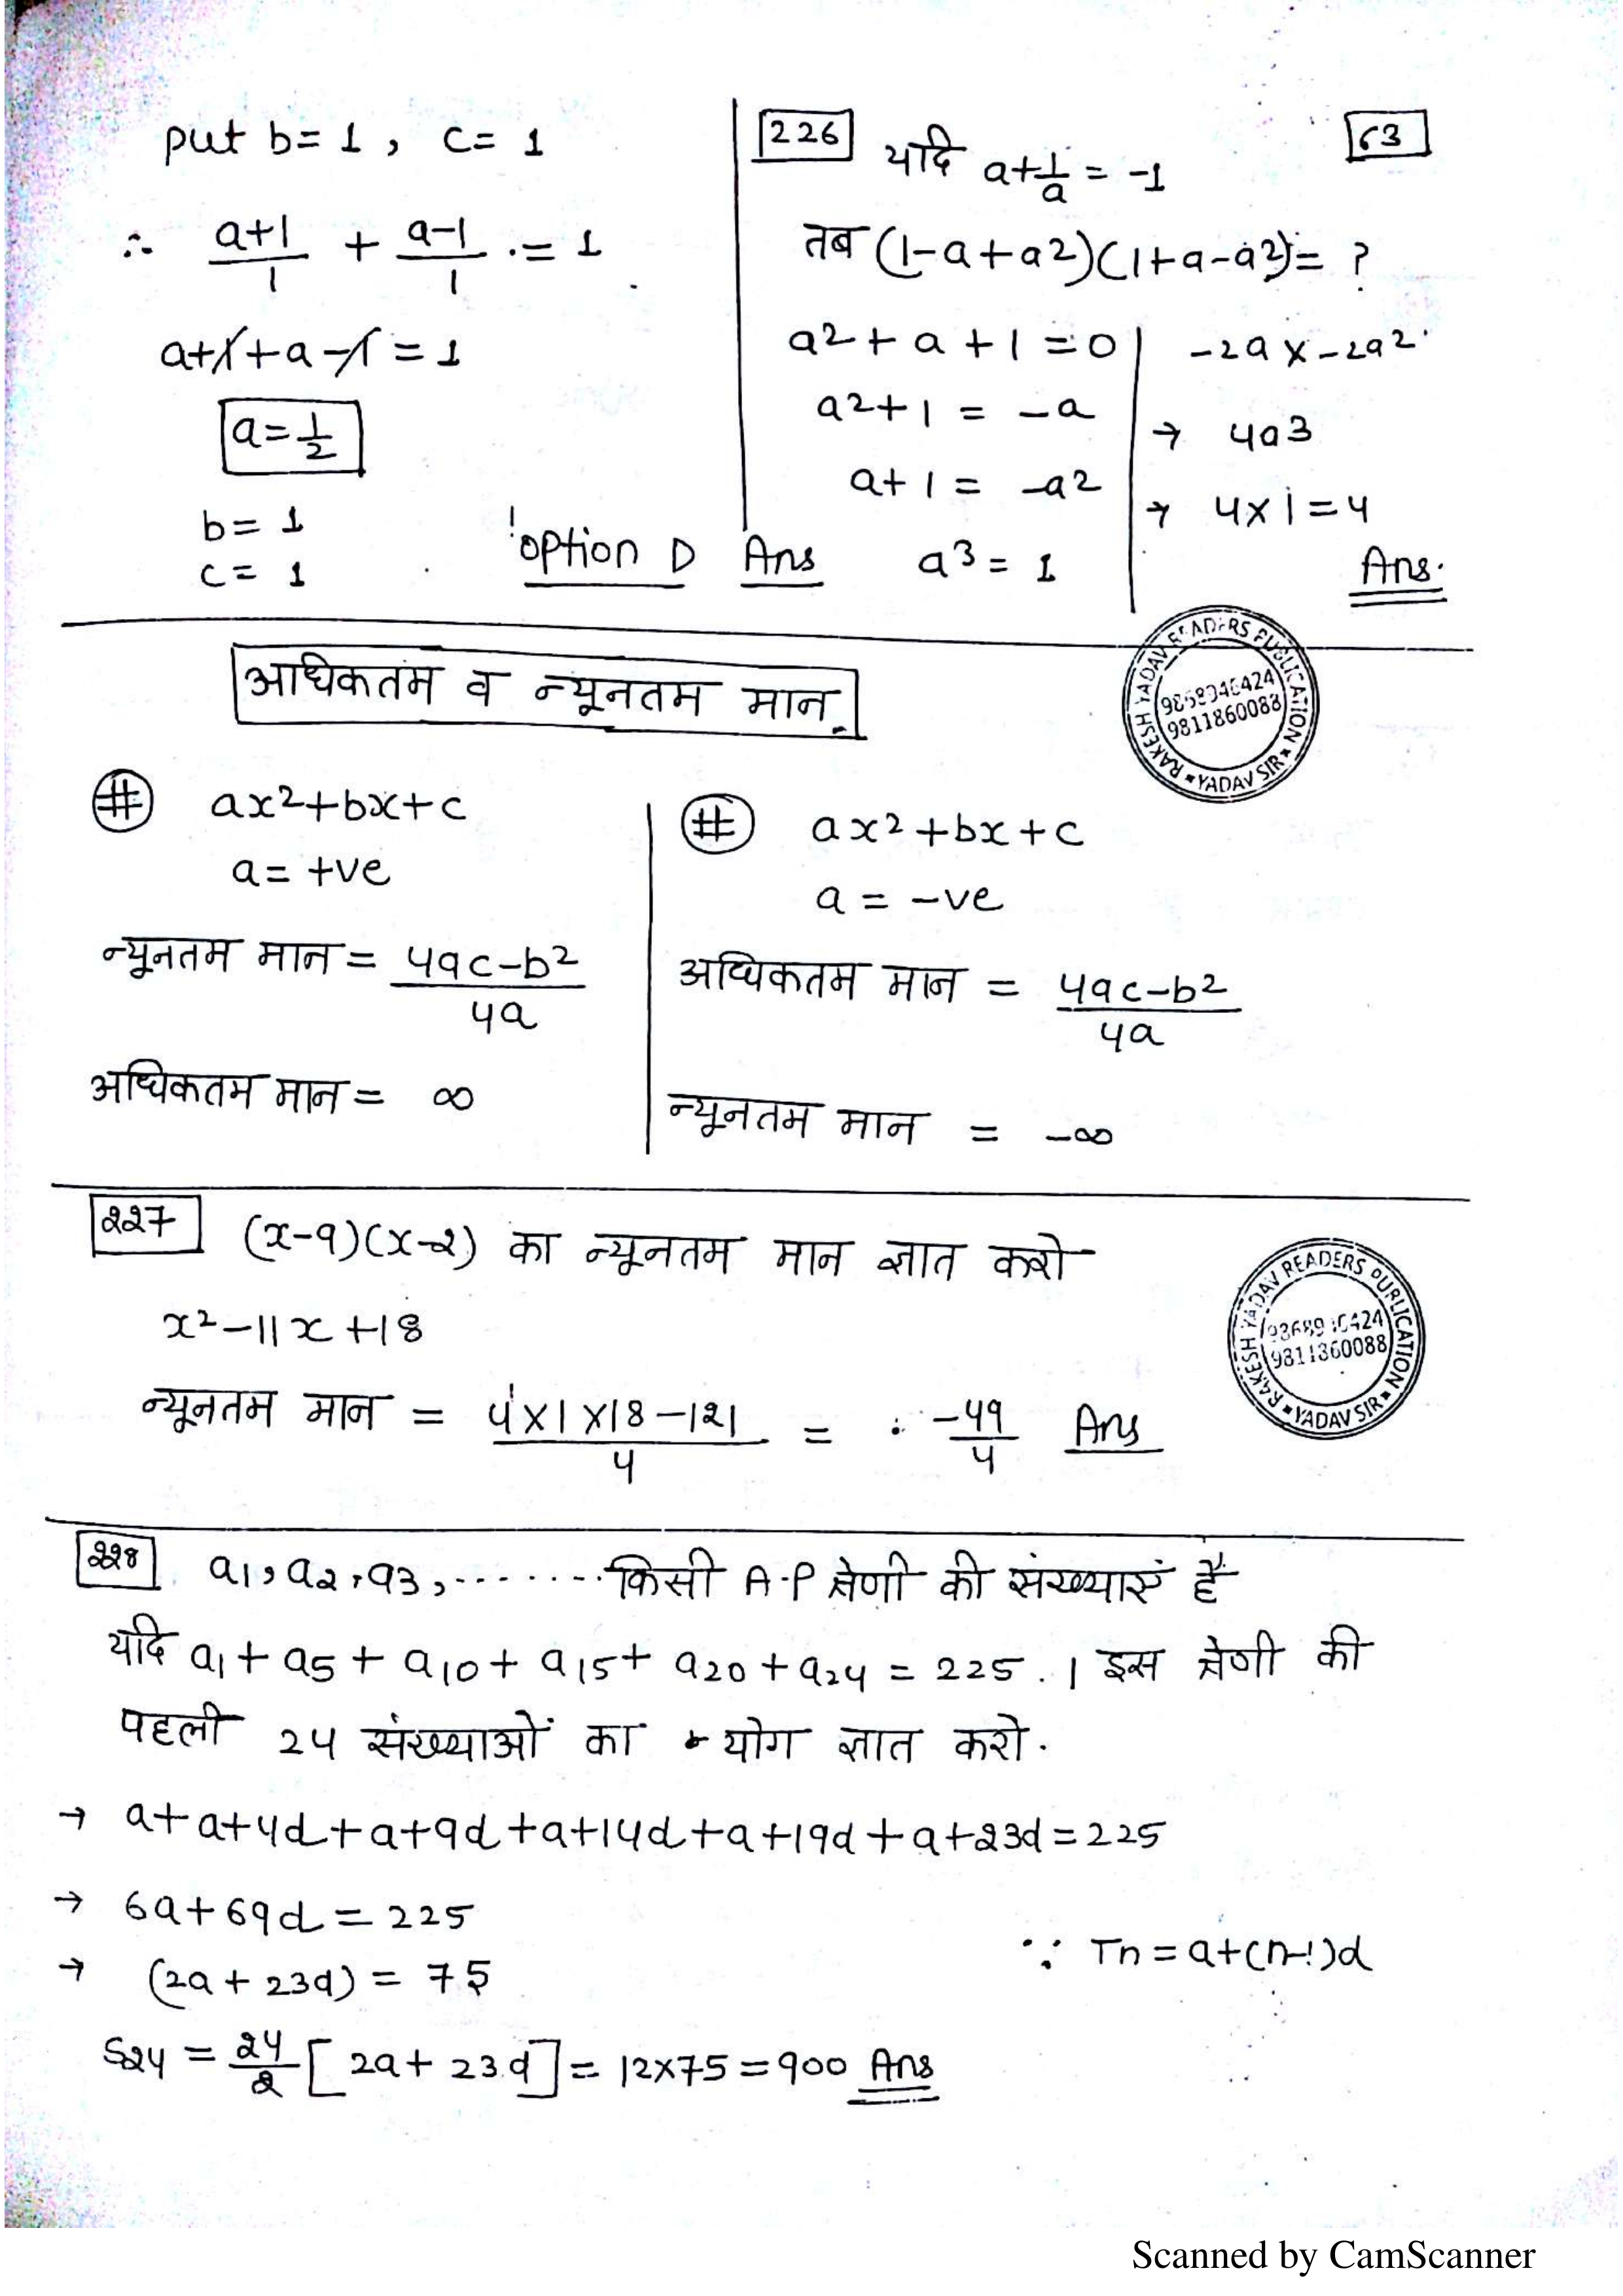 put b=1, c=1
∴ a+1/1 + a-1/1 = 1
a+1+a-1=1
a=1/2
b=1
c=1
option D Ans
226 यदि a+1/a = -1
63
तब (1-a+a2)(1+a-a2)= ?
a2+a+1=0
a2+1 = -a
a+1 = -a2
a3=1
-2a x -2a2
→ 4a3
→ 4x1=4
Ans.
अधिकतम व न्यूनतम मान
RAKESH YADAV READERS PUBLICATION
9811860088
YADAV SIR
# ax2+bx+c
a=+ve
न्यूनतम मान = 4ac-b2/4a
अधिकतम मान = ∞
# ax2+bx+c
a = -ve
अधिकतम मान = 4ac-b2/4a
न्यूनतम मान = -∞
227 (x-9)(x-2) का न्यूनतम मान ज्ञात करो
x2-11x+18
न्यूनतम मान = 4x1x18-121/4 = -49/4 Ans
RAKESH YADAV READERS PUBLICATION
YADAV SIR
228 a1, a2, a3, ....... किसी A.P श्रेणी की संख्याएं हैं
यदि a1+a5+a10+a15+a20+a24=225. । इस श्रेणी की
पहली 24 संख्याओं का योग ज्ञात करो.
→ a+a+4d+a+9d+a+14d+a+19d+a+23d=225
→ 6a+69d=225
→ (2a+23d) = 75
∵ Tn=a+(n-1)d
S24 = 24/2 [2a+23d] = 12x75=900 Ans
Scanned by CamScanner